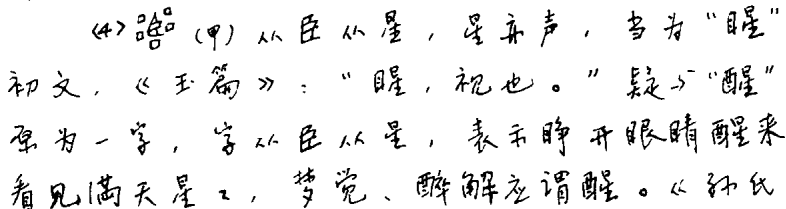 (4) (甲) 从臣从星，星亦声，当为“瞃”
初文，《玉篇》：“瞃，视也。”疑与“醒”
原为一字，字从臣从星，表示睁开眼睛醒来
看见满天星々，梦觉、醉解应谓醒。《孙氏